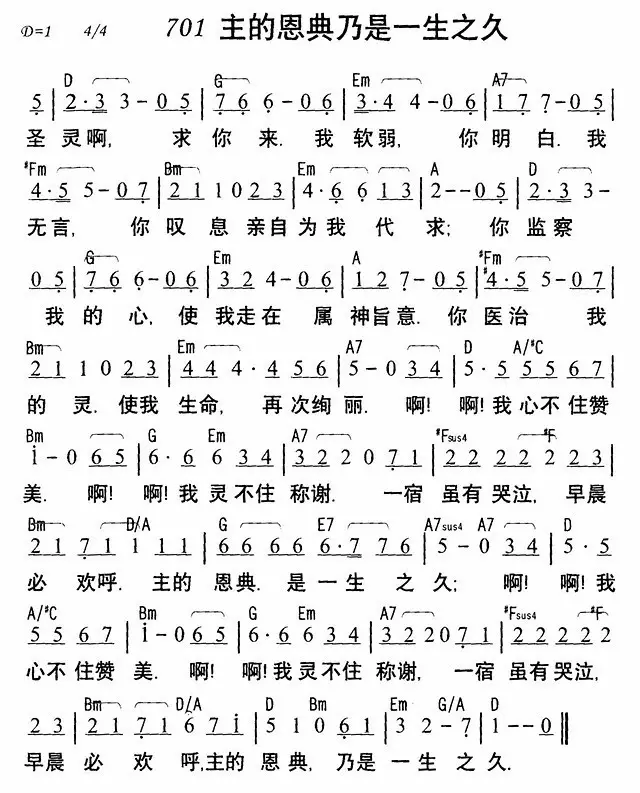 D=1 4/4 701 主的恩典乃是一生之久
D G Em A7
5 | 2·3 3-0 5 | 7 6 6-0 6 | 3·4 4-0 6 | 1 7 7-0 5 |
圣 灵 啊, 求 你 来. 我 软 弱, 你 明 白. 我
#Fm Bm Em A D
4·5 5-0 7 | 2 1 1 0 2 3 | 4·6 6 1 3 | 2--0 5 | 2·3 3-
无 言, 你 叹 息 亲自为 我 代 求; 你 监 察
G Em A #Fm
0 5 | 7 6 6-0 6 | 3 2 4-0 6 | 1 2 7-0 5 | #4·5 5-0 7 |
我 的 心, 使 我走在 属 神旨意. 你 医治 我
Bm Em A7 D A/#C
2 1 1 0 2 3 | 4 4 4·4 5 6 | 5-0 3 4 | 5·5 5 5 6 7 |
的 灵. 使我 生命, 再次绚 丽. 啊! 啊!我心不住赞
Bm G Em A7 #Fsus4 #F
1-0 6 5 | 6·6 6 3 4 | 3 2 2 0 7 1 | 2 2 2 2 2 2 3 |
美. 啊! 啊!我灵不住 称谢. 一宿 虽有 哭泣, 早晨
Bm D/A G E7 A7sus4 A7 D
2 1 7 1 1 1 1 | 6 6 6 6 6·7 7 6 | 5-0 3 4 | 5·5
必 欢呼. 主的 恩典. 是一生 之 久; 啊! 啊!我
A/#C Bm G Em A7 #Fsus4 #F
5 5 6 7 | 1-0 6 5 | 6·6 6 3 4 | 3 2 2 0 7 1 | 2 2 2 2 2
心不 住赞 美. 啊! 啊!我灵不住 称谢, 一宿 虽有哭泣,
Bm D/A D Bm Em G/A D
2 3 | 2 1 7 1 6 7 1 | 5 1 0 6 1 | 3 2-7 | 1--0 ‖
早晨 必 欢 呼,主的 恩典, 乃是 一 生 之 久.